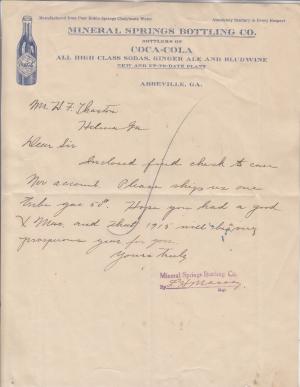 Manufactured from Pure Noble Springs Chalybeate Water
Absolutely Sanitary in Every Respect
MINERAL SPRINGS BOTTLING CO.
BOTTLERS OF
COCA-COLA
ALL HIGH CLASS SODAS, GINGER ALE AND BLUDWINE
NEW AND UP-TO-DATE PLANT
ABBEVILLE, GA.
Mr. H F. Thaxton
Helena Ga
Dear Sir
Inclosed find check to
Nov account. Please ship us one
Tube gas 50#. Hope you had a good
X Mas. and that 1915 will
prosperous year for you.
Yours truly
Mineral Springs Bottling Co.
By F. H. Massey
Mgr.